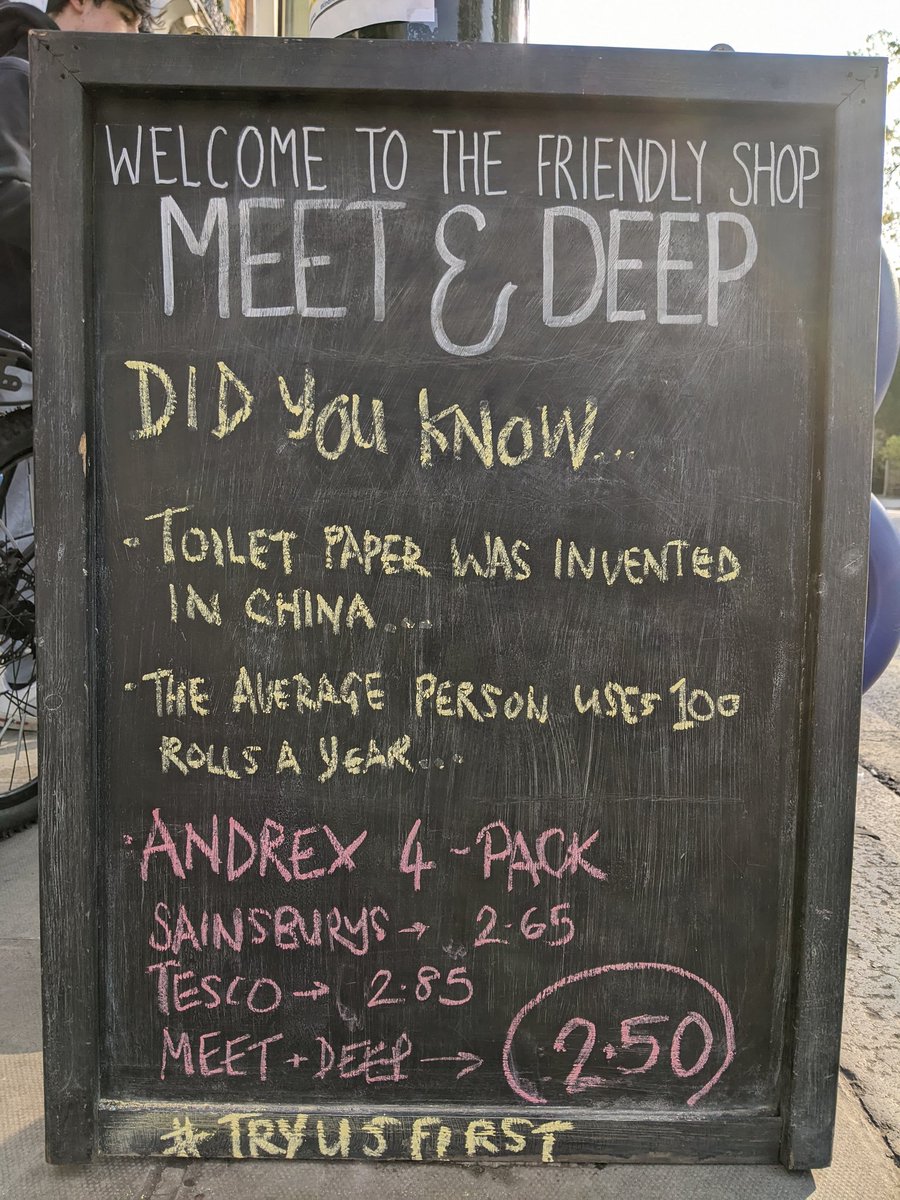 WELCOME TO THE FRIENDLY SHOP
MEET & DEEP
DID YOU KNOW...
· TOILET PAPER WAS INVENTED
IN CHINA...
· THE AVERAGE PERSON USES 100
ROLLS A YEAR...
· ANDREX 4-PACK
SAINSBURYS → 2.65
TESCO → 2.85
MEET + DEEP → 2.50
#TRYUSFIRST